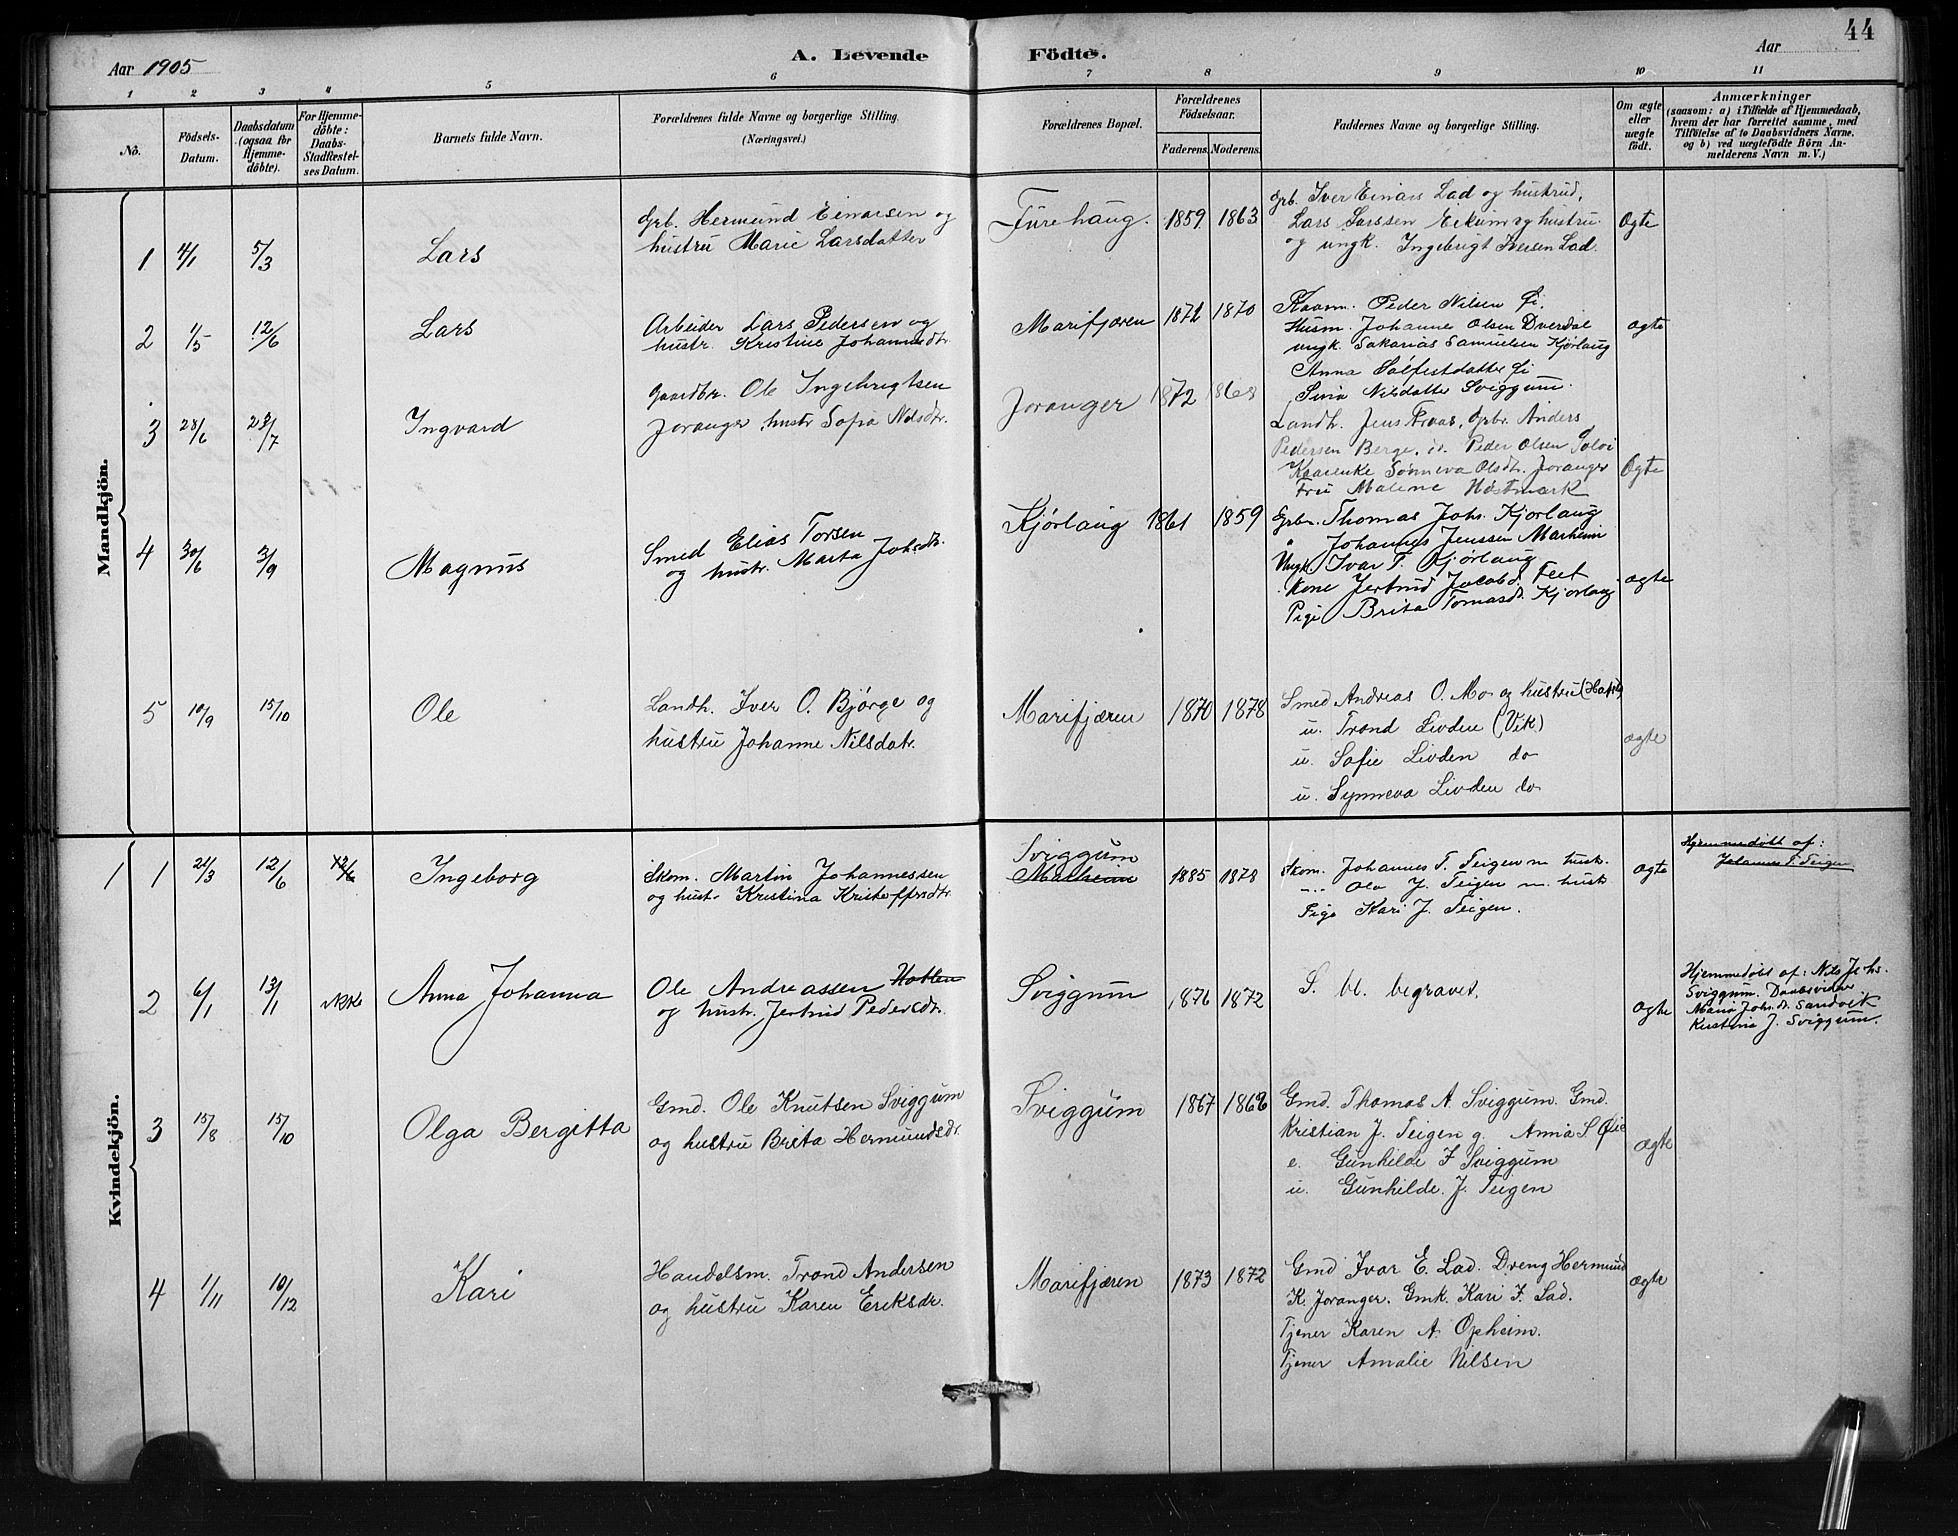 44
Aar 1905
A. Levende Födte.
Aar
1 2 3 4 5 6 7 8 9 10 11
No.
Födsels-Datum.
Daabsdatum (ogsaa for Hjemme-döbte).
For Hjemme-döbte: Daabs-Stadfæstel-ses Datum.
Barnets fulde Navn.
Forældrenes fulde Navne og borgerlige Stilling.
(Næringsvei.)
Forældrenes Bopæl.
Forældrenes Födselsaar.
Faderens. Moderens.
Faddernes Navne og borgerlige Stilling.
Om ægte eller uægte födt.
Anmærkninger
(saasom: a) i Tilfælde af Hjemmedaab,
hvem der har forrettet samme, med
Tilföielse af to Daabsvidners Navne.
og b) ved uægtefödte Börn An-
melderens Navn m. V.)
Mandkjön.
1 4/1 5/3 Lars
Grb. Hermund Einarsen og
hustru Marie Larsdatter
Furehaug. 1859. 1863
Grb. Iver Einars Lad og hustrud,
Lars Larssen Eikum og hustru
og ungk. Ingebrigt Iversen Lad.
Ogte
2 1/5 12/6 Lars
Arbeider Lars Pedersen og
hustr. Kristine Johannesdtr.
Marifjøren 1872 1870
Kaarm. Peder Nilsen Øi,
Husm. Johannes Olsen Dverdal
ungk. Sakarias Samuelsen Kjørlaug
Anna Solfestdatter Øi
Sina Nilsdatter Sviggum.
ogte
3 28/6 23/7 Ingvard
Gaardbr. Ole Ingebrigtsen
Joranger, hustr. Sofia Nilsdtr.
Joranger 1872 1868
Landh. Jens Kraas, Grbr. Anders
Pedersen Berge, Peder Olsen
Kaarenke Sønneva Olsdtr. Joranger
Fru Malene Høstmark
Ogte
4 30/6 3/9 Magnus
Smed Elias Torsen
og hustr. Marta Johsdtr.
Kjørlaug 1861 1859
Grbr. Thomas Johs. Kjørlaug
" Johannes Jenssen Marheim
Ungk. Ivar T. Kjørlaug
Kone Jertrud Jacobsd. Feet
Pige Brita Tomasdt. Kjørlaug
ægte
5 10/9 15/10 Ole
Landh. Iver O. Bjørge og
hustru Johanne Nilsdatr.
Marifjæren 1870 1878
Smed Andreas O. Mo og hustru
u. Trond Livden (Vik)
u. Sofie Livden do
u. Synneva Livden do
ægte
Kvindekjön.
1 1 21/3 12/6 12/6 Ingeborg
Skom. Martin Johannessen
og hustr. Kristina Kristoffersdtr.
Sviggum
Marheim
1885 1878
Skom. Johannes T. Teigen m hustr.
" Ola J. Teigen m. hustr
Pige Kari J. Teigen.
ogte
Hjemmedøbt af:
Johannes T. Teigen
2 6/1 13/1 Anna Johanna
Ole Andreassen Hatlen
og hustr. Jertrud Pedersdtr.
Sviggum 1876 1872
S. bl. begravet.
ogte
Hjemmedøbt af: Nils Johs.
Sviggum. Daabsvidner
Maria Johs.dt. Sandvik
Kristina J. Sviggum.
3 15/8 15/10 Olga Bergitta
Gmd. Ole Knutsen Sviggum
og hustru Brita Hermundsdr.
Sviggum 1867 1868
Gmd. Thomas A. Sviggum. Gmd.
Kristian J. Teigen g. Anna S. Øie
e. Gunhilde J Sviggum
u. Gunhilde. J. Teigen
ægte
4 1/11 10/12 Kari
Handelsm. Trond Andersen
og hustru Karen Eriksdr.
Marifjæren 1873 1872
Gmd Ivar E. Lad. Dreng Hermund
K. Joranger. Gmk. Kari I. Lad.
Tjener Karen A. Opheim.
Tjener Amalie Nilsen
ægte